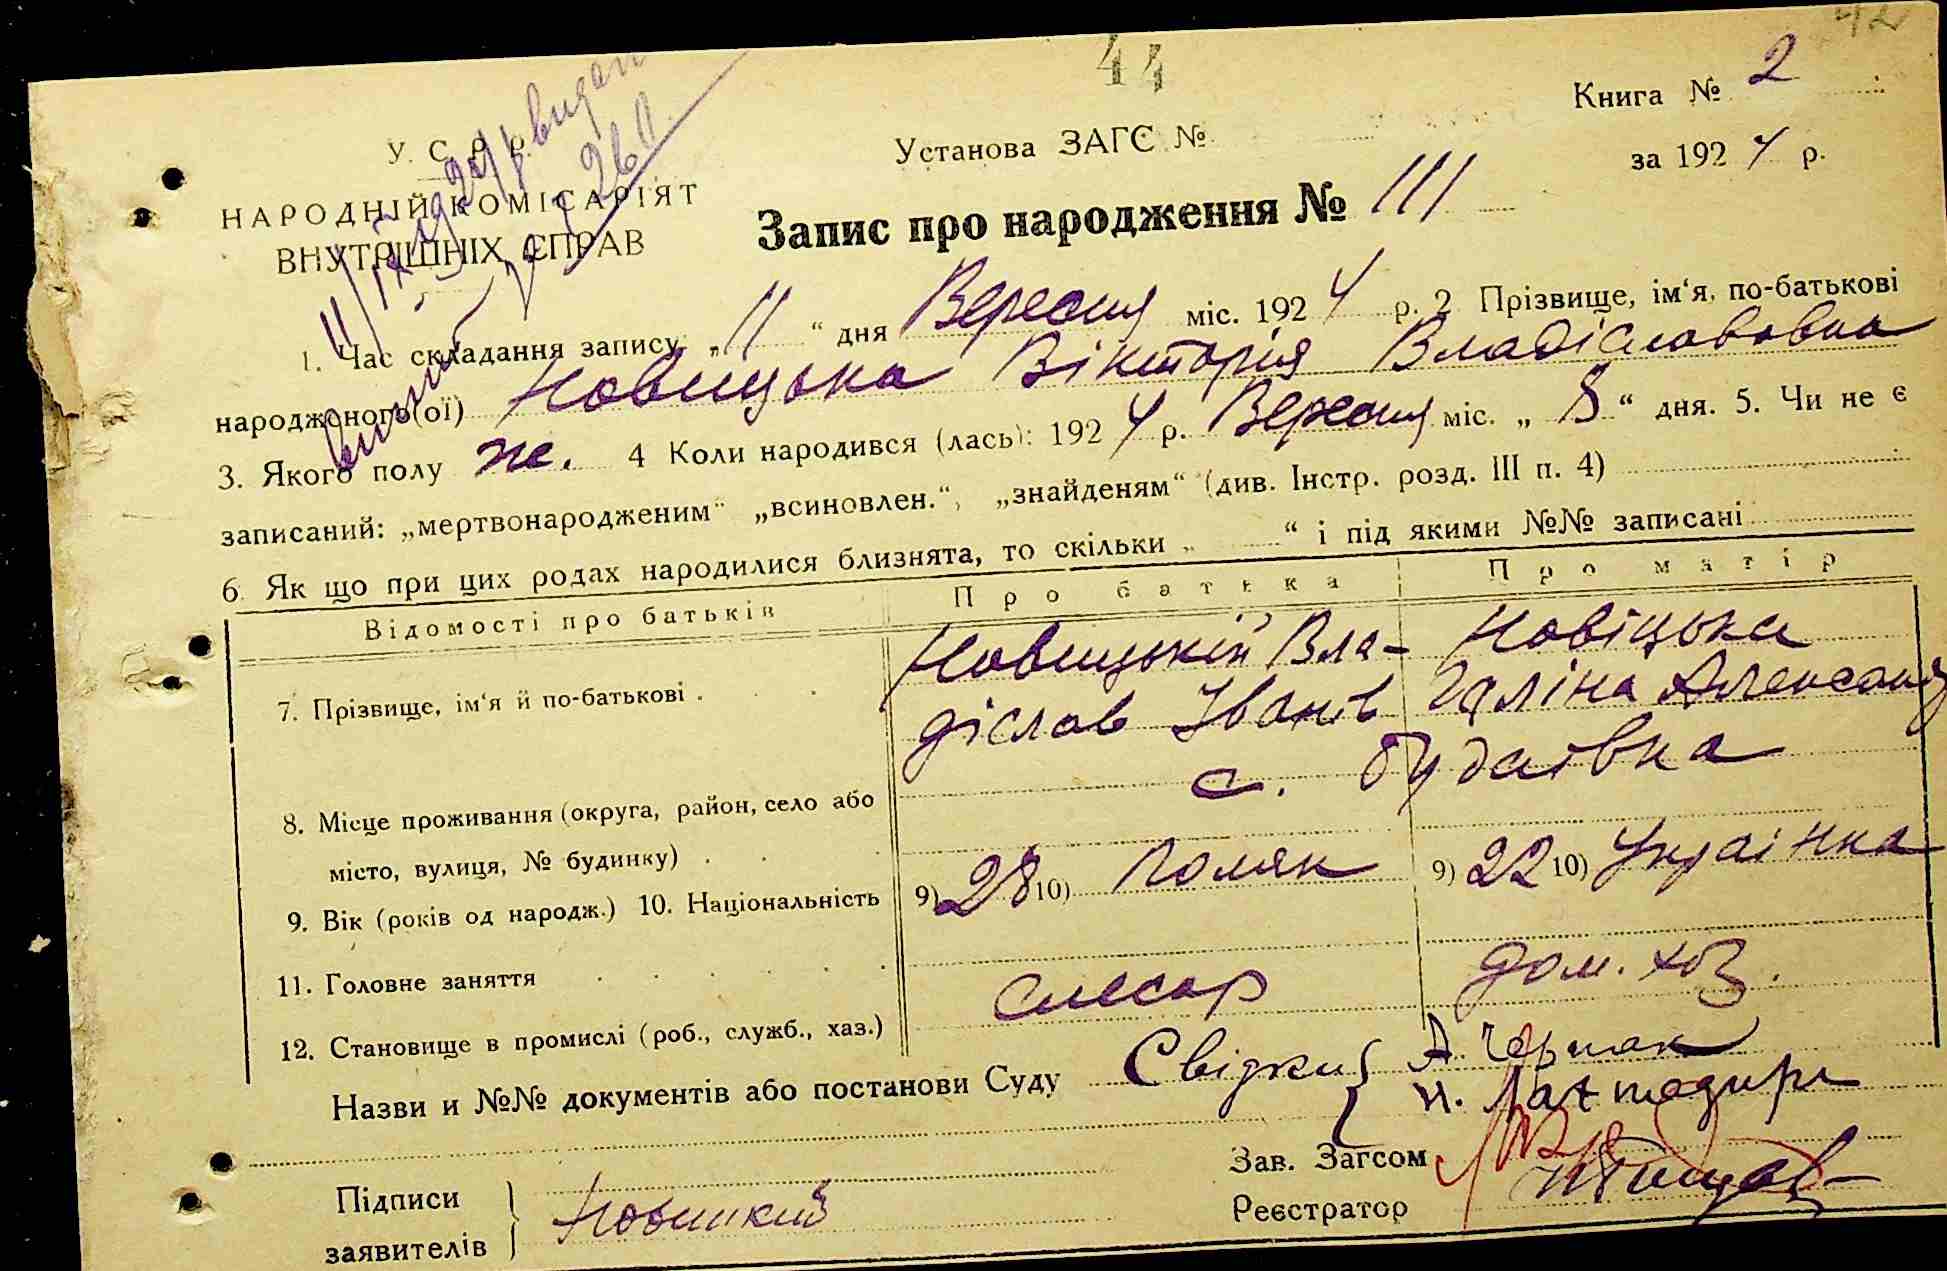 42
44
Книга № 2
У. С. Р. Р.
Установа ЗАГС №
за 1924 р.
НАРОДНІЙ КОМІСАРІЯТ
ВНУТРІШНІХ СПРАВ
Запис про народження № 111
1. Час складання запису: „11“ дня Вересня міс. 1924 р. 2 Прізвище, ім‘я, по-батькові
народженого(ої) Новицька Вікторія Владіславовна
3. Якого полу же. 4 Коли народився (лась): 1924 р. Вересня міс. „8“ дня. 5. Чи не є
записаний: „мертвонародженим“ „всиновлен.“, „знайденям“ (див. Інстр. розд. III п. 4)
6. Як що при цих родах народилися близнята, то скільки „ “ і під якими №№ записані
Відомості про батьків Про батька Про матір
7. Прізвище, ім‘я й по-батькові . Новицькій Вла- Новіцька
діслав Іванів Галіна Александ
с. Будаївка
8. Місце проживання (округа, район, село або
місто, вулиця, № будинку) .
9. Вік (років од народж.) 10. Національність 9) 28 10) Поляк 9) 22 10) Українка
11. Головне заняття слесар дом. хоз.
12. Становище в промислі (роб., служб., хаз.)
Назви и №№ документів або постанови Суду Свідки { А. Чермак
Зав. Загсом
Підписи
заявителів Новицкий
Реєстратор